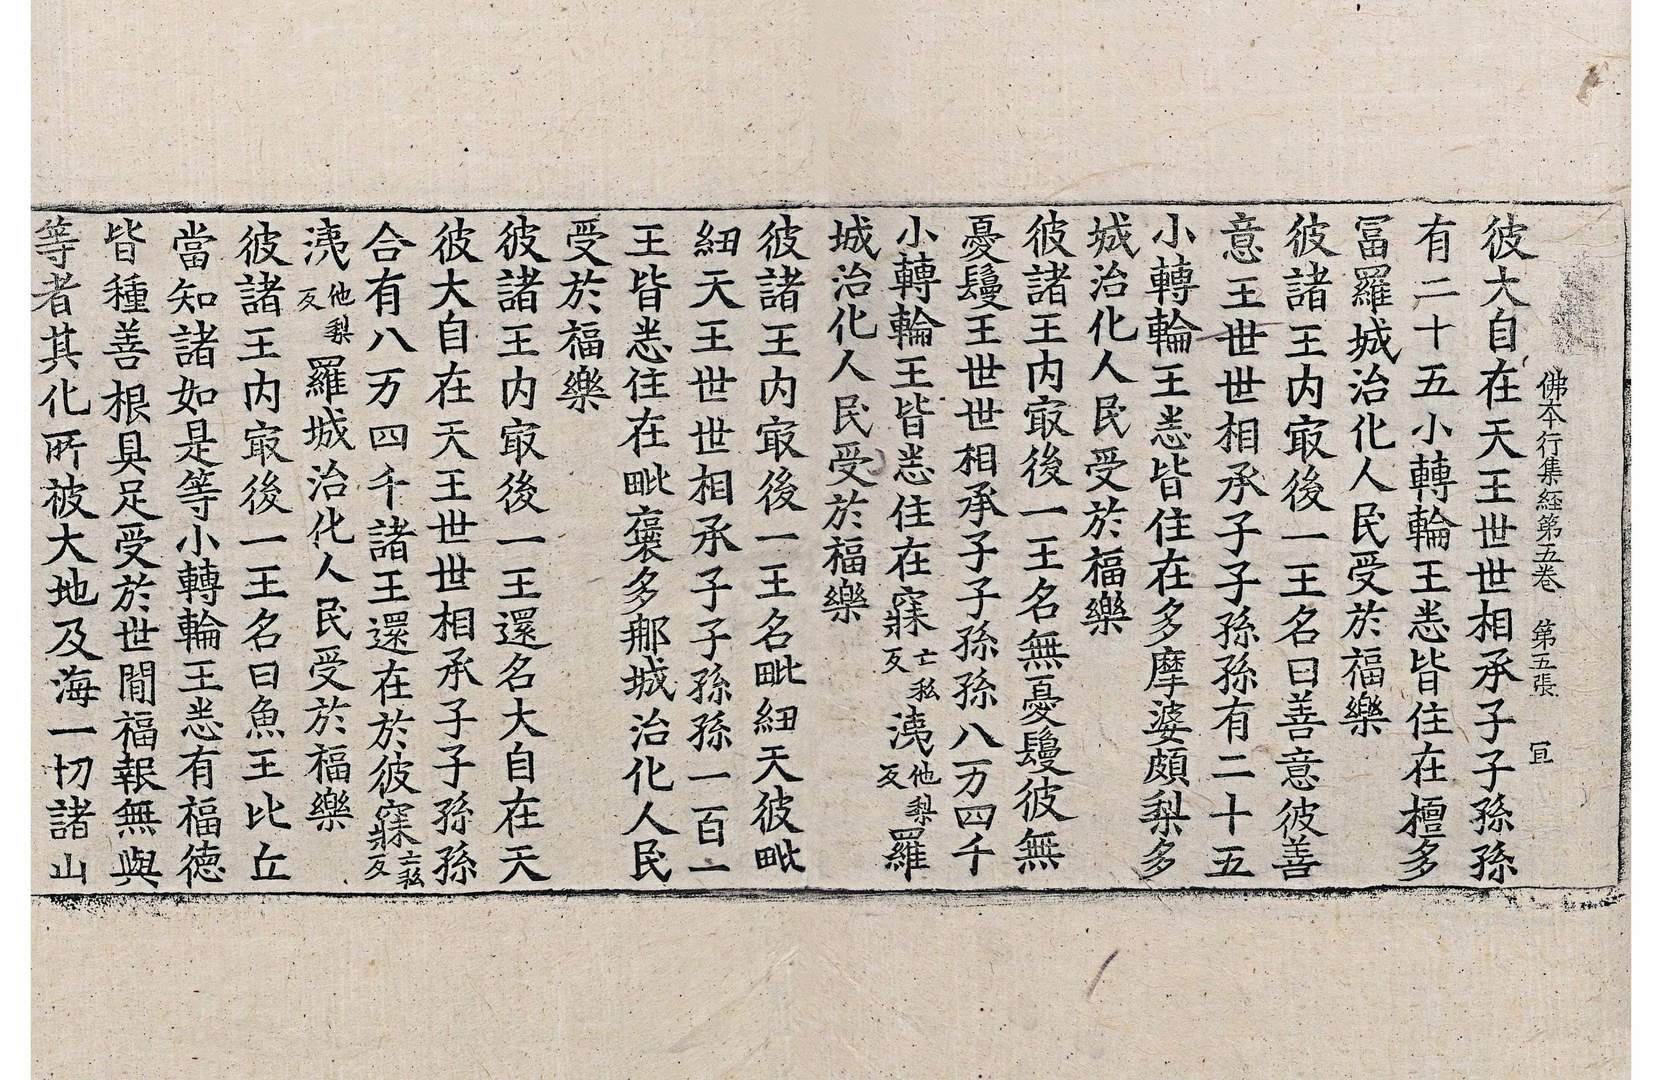 佛本行集經第五卷　第五張　冝
彼大自在天王世世相承子子孫孫
有二十五小轉輪王悉皆住在檀多
冨羅城治化人民受於福樂
彼諸王内㝡後一王名曰善意彼善
意王世世相承子子孫孫有二十五
小轉輪王悉皆住在多摩婆頗梨多
城治化人民受於福樂
彼諸王内㝡後一王名無憂鬘彼無
憂鬘王世世相承子子孫孫八万四千
小轉輪王皆悉住在寐亡𥝢反洟他梨反羅
城治化人民受於福樂
彼諸王内㝡後一王名毗紐天彼毗
紐天王世世相承子子孫孫一百一
王皆悉住在毗褒多那城治化人民
受於福樂
彼諸王内㝡後一王還名大自在天
彼大自在天王世世相承子子孫孫
合有八万四千諸王還在於彼寐亡𥝢反
洟他梨反羅城治化人民受於福樂
彼諸王内㝡後一王名曰魚王比丘
當知諸如是等小轉輪王悉有福德
皆種善根具足受於世閒福報無與
等者其化所被大地及海一切諸山